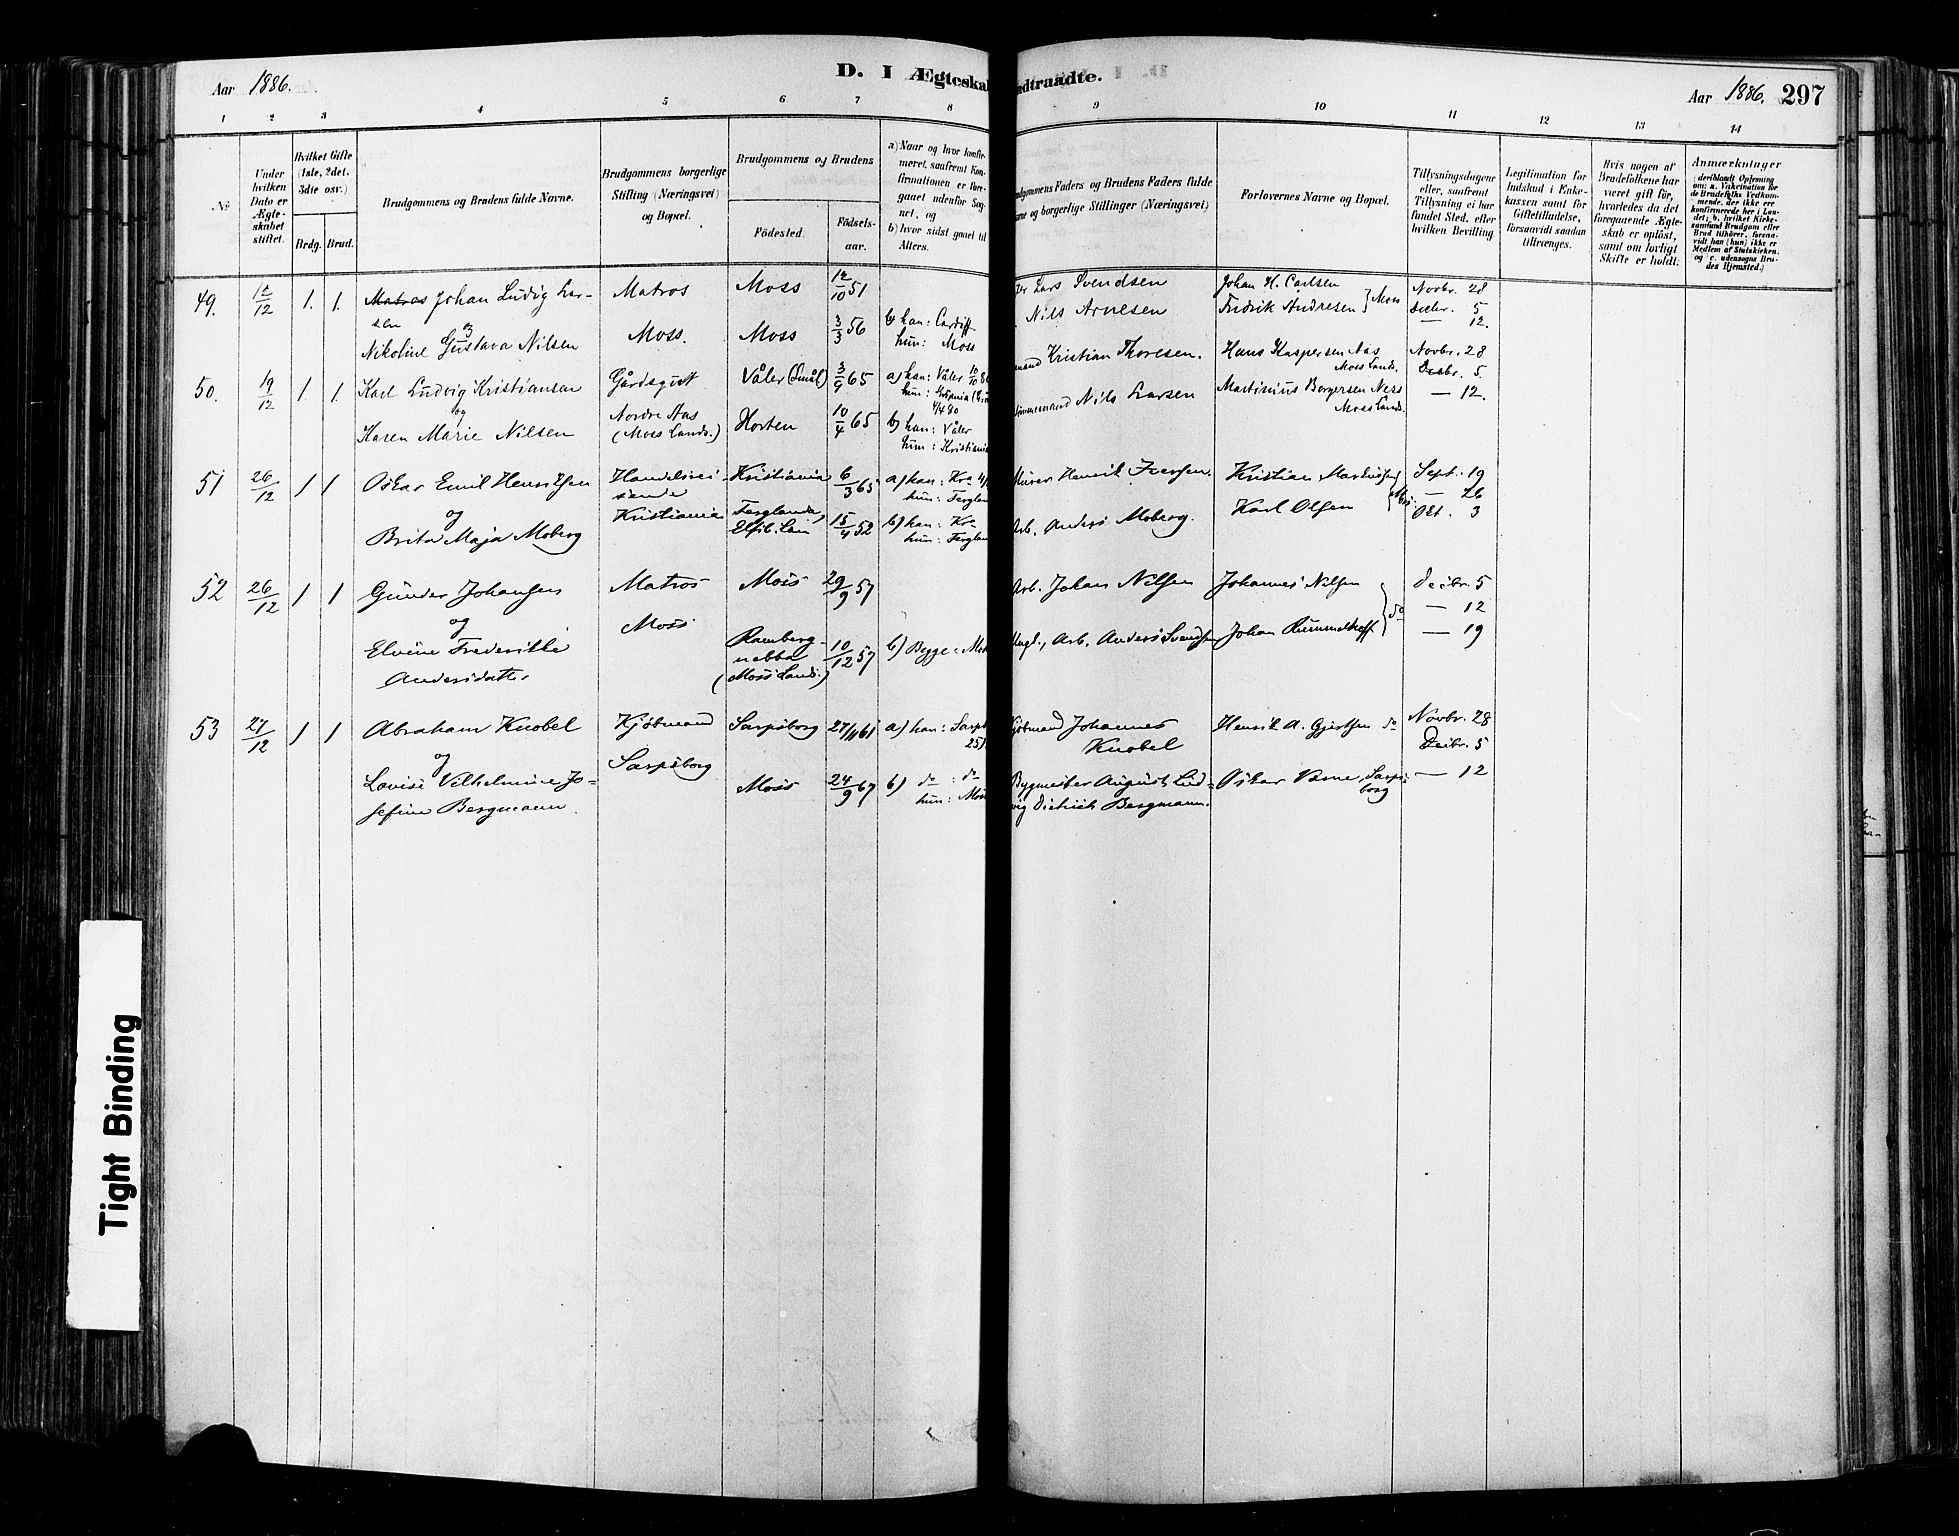 D. I Ægteskab Indtraadte.
Aar 1886.
Aar 1886. 297
1 2 3 4 5 6 7 8 9 10 11 12 13 14
No
Under hvilken Dato er Ægteskabet stiftet.
Hvilket Gifte (1ste, 2det, 3die osv.)
Brdg. Brud.
Brudgommens og Brudens fulde Navne.
Brudgommens borgerlige Stilling (Næringsvei) og Bopæl.
Brudgommens og Brudens
Födested. Födselsaar.
a) Naar og hvor konfirmeret, saafremt Konfirmationen er foregaaet udenfor Sognet, og
b) hvor sidst gaaet til Alters.
Brudgommens Faders og Brudens Faders fulde Navne og borgerlige Stillinger (Næringsvei)
Forlovernes Navne og Bopæl.
Tillysningsdagene eller, saafremt Tillysning ei har fundet Sted, efter hvilken Bevilling.
Legitimation for Indskud i Enkekassen samt for Giftetilladelse, forsaavidt saadan tiltrænges.
Hvis nogen af Brudefolkene har været gift för, hvorledes da det foregaaende Ægteskab er oplöst, samt om lovligt Skifte er holdt.
Anmærkninger (deriblandt Oplysning om: a. Vakcination for de Brudefolks Vedkommende, der ikke ere konfirmerede her i Landet; b. hvilket Kirkesamfund Brudgom eller Brud tilhörer, forsaavidt han (hun) ikke er Medlem af Statskirken, og c. udensogns Brudes Hjemsted.)
49. 12/12 1. 1. Matros Johan Ludvig Larsen
og
Nikoline Gustava Nilsen
Matros
Moss.
Moss 12/10 51
Moss 3/3 56
b) han: Cardiff
hun: Moss
Lars Svendsen
Nils Arnesen
Johan H. Carlsen
Fredrik Andresen } Moss
Novbr. 28
Decbr. 5
— 12.
50. 19/12 1 1 Karl Ludvig Kristiansen
og
Karen Marie Nilsen
Gårdsgutt
Nordre Aas
(Moss Lands.)
Våler (Smål) 3/9 65
Horten 10/4 65
a) han: Våler
hun:
b) han: Våler
hun: Kristiania
Kristian Thoresen.
Tømmermand Nils Larsen
Hans Kaspersen Aas
Moss Lands.
Martinius Borgersen Ness
Moss Lands.
Novbr. 28
Decbr. 5.
— 12.
51 26/12 1 1 Oskar Emil Henriksen
og
Brita Maja Moberg
Handelsreisende
Kristiania
Kristiania 6/3 65
15/4 52
a) han: Kra
hun:
b) han: Kra
hun:
Murer Henrik Iversen.
Arb. Anders Moberg.
Kristian
Karl Olsen
Sept. 19
— 26
Okt. 3
52 26/12 1 1 Gunder Johansen
og
Elvine Frederikke
Andersdatter
Matros
Moss
Moss 29/9 57
Rambergnebba
(Moss Lands.) 10/12 57
b) Begge: Moss
Arb. Johan Nilsen
Ungk., Arb. Anders Svendsen
Johannes Nilsen
Johan Rummelhoff } do
Decbr. 5
— 12
— 19
53 27/12 1 1 Abraham Knobel
og
Lovise Vilhelmine Josefine Bergmann.
Kjøbmand
Sarpsborg
Sarpsborg 27/11 61
Moss 24/9 67
a) han: Sarpsb
b) do: do
hun: Moss
Kjøbmand Johannes
Knobel
Bygmester August Ludvig Dietrich Bergmann.
Henrik A. Gjertsen do
Oskar Sarpsborg
Novbr. 28
Decbr. 5
— 12
Tight Binding